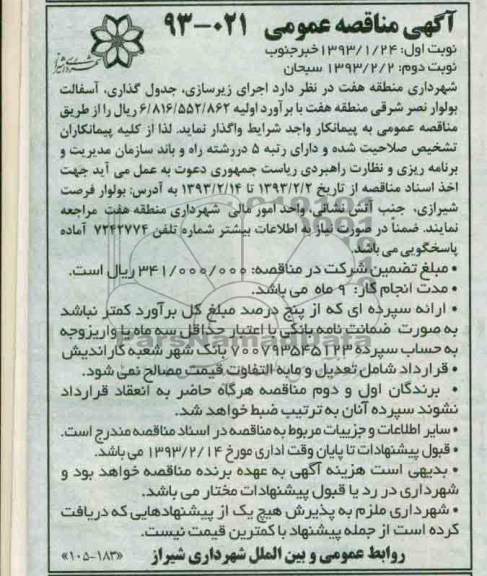 آگهی مناقصه عمومی ۰۲۱-۹۳
نوبت اول: ۱۳۹۳/۱/۲۴ خبرجنوب
نوبت دوم: ۱۳۹۳/۲/۲ سبحان
شهرداری منطقه هفت در نظر دارد اجرای زیرسازی، جدول گذاری، آسفالت
بولوار نصر شرقی منطقه هفت با برآورد اولیه ۶/۸۱۶/۵۵۲/۸۶۲ ریال را از طریق
مناقصه عمومی به پیمانکار واجد شرایط واگذار نماید. لذا از کلیه پیمانکاران
تشخیص صلاحیت شده و دارای رتبه ۵ دررشته راه و باند سازمان مدیریت و
برنامه ریزی و نظارت راهبردی ریاست جمهوری دعوت به عمل می آید جهت
اخذ اسناد مناقصه از تاریخ ۱۳۹۳/۲/۲ تا ۱۳۹۳/۲/۱۴ به آدرس: بولوار فرصت
شیرازی، جنب آتش نشانی، واحد امور مالی شهرداری منطقه هفت مراجعه
نمایند. ضمناً در صورت نیاز به اطلاعات بیشتر شماره تلفن ۷۲۴۲۷۷۴ آماده
پاسخگویی می باشد.
• مبلغ تضمین شرکت در مناقصه: ۳۴۱/۰۰۰/۰۰۰ ریال است.
• مدت انجام کار: ۹ ماه می باشد.
• ارائه سپرده ای که از پنج درصد مبلغ کل برآورد کمتر نباشد
به صورت ضمانت نامه بانکی با اعتبار حداقل سه ماه یا واریز وجه
به حساب سپرده ۷۰۰۷۹۳۵۴۵۱۲۳ بانک شهر شعبه کاراندیش
• قرارداد شامل تعدیل و مابه التفاوت قیمت مصالح نمی شود.
• برندگان اول و دوم مناقصه هرگاه حاضر به انعقاد قرارداد
نشوند سپرده آنان به ترتیب ضبط خواهد شد.
• سایر اطلاعات و جزییات مربوط به مناقصه در اسناد مناقصه مندرج است.
• قبول پیشنهادات تا پایان وقت اداری مورخ ۱۳۹۳/۲/۱۴ می باشد.
• بدیهی است هزینه آگهی به عهده برنده مناقصه خواهد بود و
شهرداری در رد یا قبول پیشنهادات مختار می باشد.
• شهرداری ملزم به پذیرش هیچ یک از پیشنهادهایی که دریافت
کرده است از جمله پیشنهاد با کمترین قیمت نیست.
روابط عمومی و بین الملل شهرداری شیراز «۱۰۵-۱۸۳»
ParsNamadData